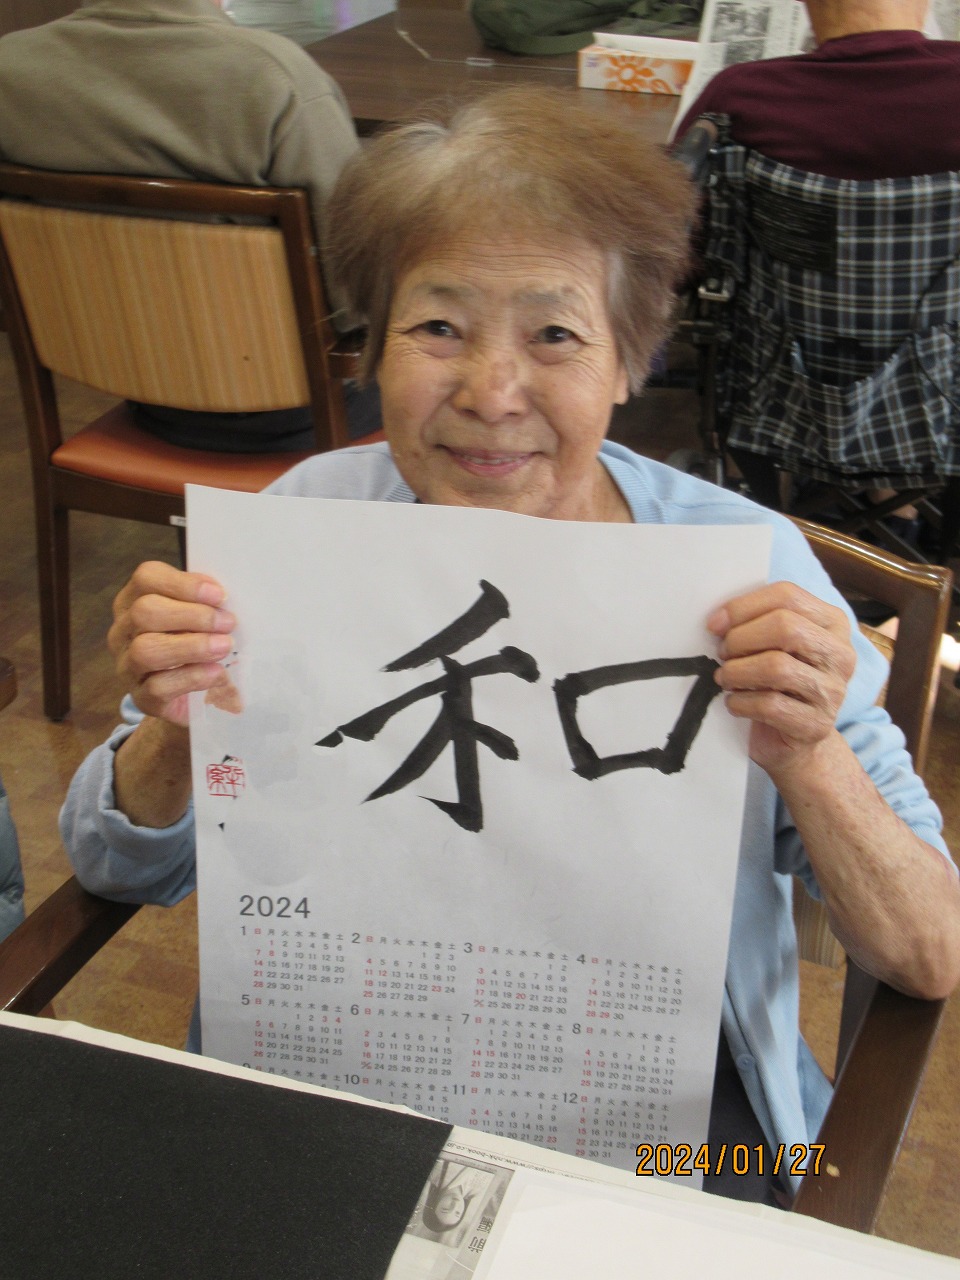 和
2024
1 日 月 火 水 木 金 土
1 2 3 4 5 6
7 8 9 10 11 12 13
14 15 16 17 18 19 20
21 22 23 24 25 26 27
28 29 30 31
2 日 月 火 水 木 金 土
1 2 3
4 5 6 7 8 9 10
11 12 13 14 15 16 17
18 19 20 21 22 23 24
25 26 27 28 29
3 日 月 火 水 木 金 土
1 2
3 4 5 6 7 8 9
10 11 12 13 14 15 16
17 18 19 20 21 22 23
25 26 27 28 29 30
4 日 月 火 水 木 金 土
1 2 3 4 5 6
7 8 9 10 11 12 13
14 15 16 17 18 19 20
21 22 23 24 25 26 27
28 29 30
5 日 月 火 水 木 金 土
1 2 3 4
5 6 7 8 9 10 11
12 13 14 15 16 17 18
19 20 21 22 23 24 25
26 27 28 29 30 31
6 日 月 火 水 木 金 土
1
2 3 4 5 6 7 8
9 10 11 12 13 14 15
16 17 18 19 20 21 22
24 25 26 27 28 29
7 日 月 火 水 木 金 土
1 2 3 4 5 6
7 8 9 10 11 12 13
14 15 16 17 18 19 20
21 22 23 24 25 26 27
28 29 30 31
8 日 月 火 水 木 金 土
1 2 3
4 5 6 7 8 9 10
11 12 13 14 15 16 17
18 19 20 21 22 23 24
25 26 27 28 29 30 31
9 日 月 火 水 木 金 土
10 日 月 火 水 木 金 土
11 日 月 火 水 木 金 土
1 2
3 4 5 6 7 8 9
10 11 12 13 14 15 16
12 日 月 火 水 木 金 土
1 2 3 4 5 6 7
8 9 10 11 12 13 14
15 16 17 18 19 20 21
22 23 24 25 26 27 28
29 30 31
2024/01/27